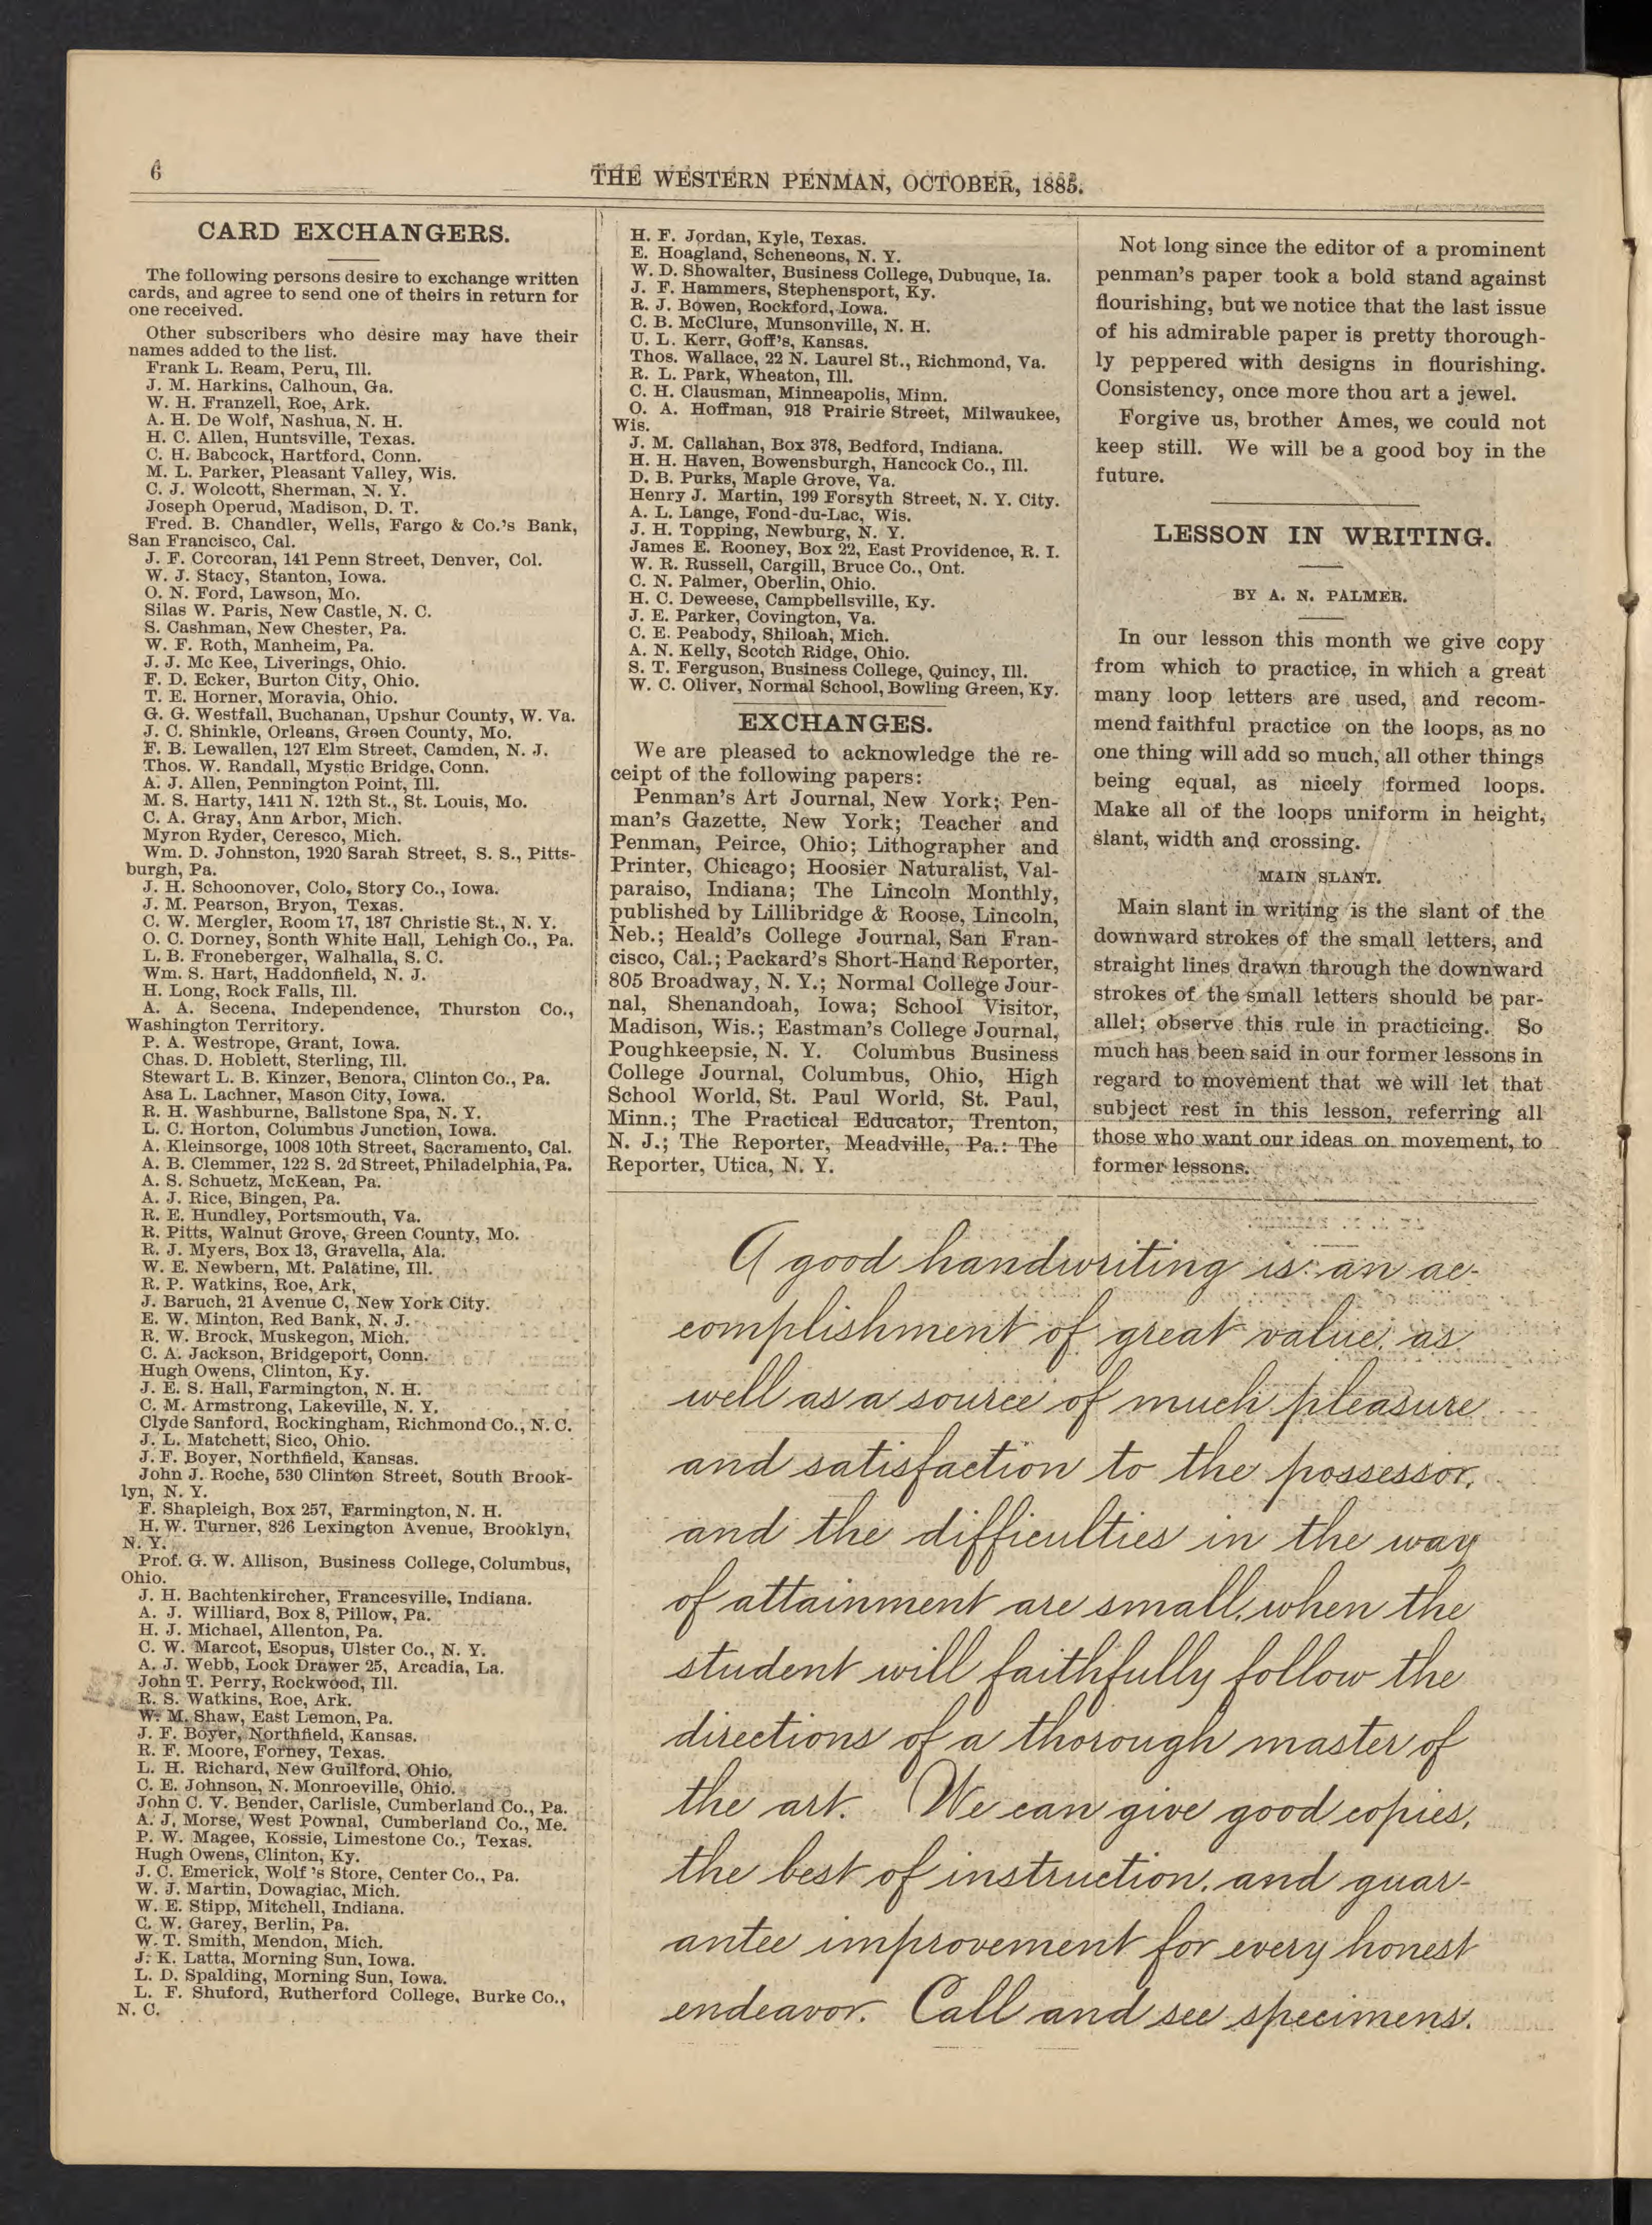 6
THE WESTERN PENMAN, OCTOBER, 1885.
CARD EXCHANGERS.
The following persons desire to exchange written
cards, and agree to send one of theirs in return for
one received.
Other subscribers who desire may have their
names added to the list.
Frank L. Ream, Peru, Ill.
J. M. Harkins, Calhoun, Ga.
W. H. Franzell, Roe, Ark.
A. H. De Wolf, Nashua, N. H.
H. C. Allen, Huntsville, Texas.
C. H. Babcock, Hartford, Conn.
M. L. Parker, Pleasant Valley, Wis.
C. J. Wolcott, Sherman, N. Y.
Joseph Operud, Madison, D. T.
Fred. B. Chandler, Wells, Fargo & Co.'s Bank,
San Francisco, Cal.
J. F. Corcoran, 141 Penn Street, Denver, Col.
W. J. Stacy, Stanton, Iowa.
O. N. Ford, Lawson, Mo.
Silas W. Paris, New Castle, N. C.
S. Cashman, New Chester, Pa.
W. F. Roth, Manheim, Pa.
J. J. Mc Kee, Liverings, Ohio.
F. D. Ecker, Burton City, Ohio.
T. E. Horner, Moravia, Ohio.
G. G. Westfall, Buchanan, Upshur County, W. Va.
J. C. Shinkle, Orleans, Green County, Mo.
F. B. Lewallen, 127 Elm Street, Camden, N. J.
Thos. W. Randall, Mystic Bridge, Conn.
A. J. Allen, Pennington Point, Ill.
M. S. Harty, 1411 N. 12th St., St. Louis, Mo.
C. A. Gray, Ann Arbor, Mich.
Myron Ryder, Ceresco, Mich.
Wm. D. Johnston, 1920 Sarah Street, S. S., Pitts-
burgh, Pa.
J. H. Schoonover, Colo, Story Co., Iowa.
J. M. Pearson, Bryon, Texas.
C. W. Mergler, Room 17, 187 Christie St., N. Y.
O. C. Dorney, Sonth White Hall, Lehigh Co., Pa.
L. B. Froneberger, Walhalla, S. C.
Wm. S. Hart, Haddonfield, N. J.
H. Long, Rock Falls, Ill.
A. A. Secena, Independence, Thurston Co.,
Washington Territory.
P. A. Westrope, Grant, Iowa.
Chas. D. Hoblett, Sterling, Ill.
Stewart L. B. Kinzer, Benora, Clinton Co., Pa.
Asa L. Lachner, Mason City, Iowa.
R. H. Washburne, Ballstone Spa, N. Y.
L. C. Horton, Columbus Junction, Iowa.
A. Kleinsorge, 1008 10th Street, Sacramento, Cal.
A. B. Clemmer, 122 S. 2d Street, Philadelphia, Pa.
A. S. Schuetz, McKean, Pa.
A. J. Rice, Bingen, Pa.
R. E. Hundley, Portsmouth, Va.
R. Pitts, Walnut Grove, Green County, Mo.
R. J. Myers, Box 13, Gravella, Ala.
W. E. Newbern, Mt. Palatine, Ill.
R. P. Watkins, Roe, Ark,
J. Baruch, 21 Avenue C, New York City.
E. W. Minton, Red Bank, N. J.
R. W. Brock, Muskegon, Mich.
C. A. Jackson, Bridgeport, Conn.
Hugh Owens, Clinton, Ky.
J. E. S. Hall, Farmington, N. H.
C. M. Armstrong, Lakeville, N. Y.
Clyde Sanford, Rockingham, Richmond Co., N. C.
J. L. Matchett, Sico, Ohio.
J. F. Boyer, Northfield, Kansas.
John J. Roche, 530 Clinton Street, South Brook-
lyn, N. Y.
F. Shapleigh, Box 257, Farmington, N. H.
H. W. Turner, 826 Lexington Avenue, Brooklyn,
N. Y.
Prof. G. W. Allison, Business College, Columbus,
Ohio.
J. H. Bachtenkircher, Francesville, Indiana.
A. J. Williard, Box 8, Pillow, Pa.
H. J. Michael, Allenton, Pa.
C. W. Marcot, Esopus, Ulster Co., N. Y.
A. J. Webb, Lock Drawer 25, Arcadia, La.
John T. Perry, Rockwood, Ill.
R. S. Watkins, Roe, Ark.
W. M. Shaw, East Lemon, Pa.
J. F. Boyer, Northfield, Kansas.
R. F. Moore, Forney, Texas.
L. H. Richard, New Guilford, Ohio,
C. E. Johnson, N. Monroeville, Ohio.
John C. V. Bender, Carlisle, Cumberland Co., Pa.
A. J. Morse, West Pownal, Cumberland Co., Me.
P. W. Magee, Kossie, Limestone Co., Texas.
Hugh Owens, Clinton, Ky.
J. C. Emerick, Wolf 's Store, Center Co., Pa.
W. J. Martin, Dowagiac, Mich.
W. E. Stipp, Mitchell, Indiana.
C. W. Garey, Berlin, Pa.
W. T. Smith, Mendon, Mich.
J. K. Latta, Morning Sun, Iowa.
L. D. Spalding, Morning Sun, Iowa.
L. F. Shuford, Rutherford College, Burke Co.,
N. C.
H. F. Jordan, Kyle, Texas.
E. Hoagland, Scheneons, N. Y.
W. D. Showalter, Business College, Dubuque, Ia.
J. F. Hammers, Stephensport, Ky.
R. J. Bowen, Rockford, Iowa.
C. B. McClure, Munsonville, N. H.
U. L. Kerr, Goff's, Kansas.
Thos. Wallace, 22 N. Laurel St., Richmond, Va.
R. L. Park, Wheaton, Ill.
C. H. Clausman, Minneapolis, Minn.
O. A. Hoffman, 918 Prairie Street, Milwaukee,
Wis.
J. M. Callahan, Box 378, Bedford, Indiana.
H. H. Haven, Bowensburgh, Hancock Co., Ill.
D. B. Purks, Maple Grove, Va.
Henry J. Martin, 199 Forsyth Street, N. Y. City.
A. L. Lange, Fond-du-Lac, Wis.
J. H. Topping, Newburg, N. Y.
James E. Rooney, Box 22, East Providence, R. I.
W. R. Russell, Cargill, Bruce Co., Ont.
C. N. Palmer, Oberlin, Ohio.
H. C. Deweese, Campbellsville, Ky.
J. E. Parker, Covington, Va.
C. E. Peabody, Shiloah, Mich.
A. N. Kelly, Scotch Ridge, Ohio.
S. T. Ferguson, Business College, Quincy, Ill.
W. C. Oliver, Normal School, Bowling Green, Ky.
EXCHANGES.
We are pleased to acknowledge the re-
ceipt of the following papers:
Penman's Art Journal, New York; Pen-
man's Gazette, New York; Teacher and
Penman, Peirce, Ohio; Lithographer and
Printer, Chicago; Hoosier Naturalist, Val-
paraiso, Indiana; The Lincoln Monthly,
published by Lillibridge & Roose, Lincoln,
Neb.; Heald's College Journal, San Fran-
cisco, Cal.; Packard's Short-Hand Reporter,
805 Broadway, N. Y.; Normal College Jour-
nal, Shenandoah, Iowa; School Visitor,
Madison, Wis.; Eastman's College Journal,
Poughkeepsie, N. Y. Columbus Business
College Journal, Columbus, Ohio, High
School World, St. Paul World, St. Paul,
Minn.; The Practical Educator, Trenton,
N. J.; The Reporter, Meadville, Pa.: The
Reporter, Utica, N. Y.
Not long since the editor of a prominent
penman's paper took a bold stand against
flourishing, but we notice that the last issue
of his admirable paper is pretty thorough-
ly peppered with designs in flourishing.
Consistency, once more thou art a jewel.
Forgive us, brother Ames, we could not
keep still. We will be a good boy in the
future.
LESSON IN WRITING.
BY A. N. PALMER.
In our lesson this month we give copy
from which to practice, in which a great
many loop letters are used, and recom-
mend faithful practice on the loops, as no
one thing will add so much, all other things
being equal, as nicely formed loops.
Make all of the loops uniform in height,
slant, width and crossing.
MAIN SLANT.
Main slant in writing is the slant of the
downward strokes of the small letters, and
straight lines drawn through the downward
strokes of the small letters should be par-
allel; observe this rule in practicing. So
much has been said in our former lessons in
regard to movement that we will let that
subject rest in this lesson, referring all
those who want our ideas on movement, to
former lessons.
A good handwriting is an ac-
complishment of great value, as
well as a source of much pleasure
and satisfaction to the possessor,
and the difficulties in the way
of attainment are small, when the
student will faithfully follow the
directions of a thorough master of
the art. We can give good copies,
the best of instruction, and guar-
antee improvement for every honest
endeavor. Call and see specimens.